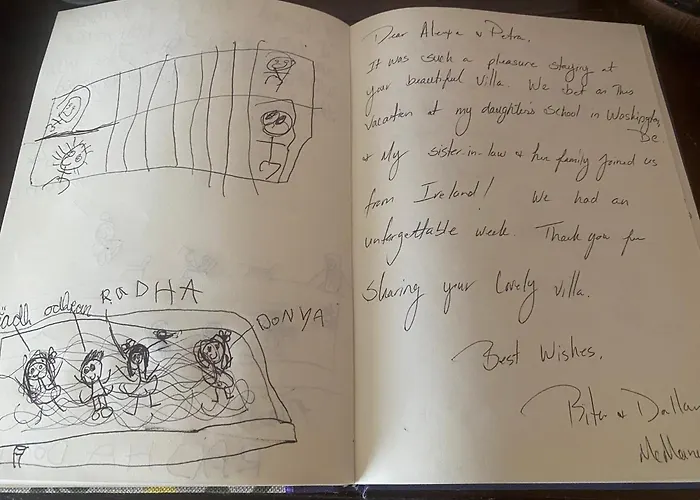 RaDHA
DONYA
Dear & Petra,
It was such a pleasure staying at
your beautiful Villa. We bet on This
vacation at my daughter's School in Washington,
DC.
& My sister-in-law & her family joined us
from Ireland! We had an
unforgettable week. Thank you for
Sharing your lovely villa.
Best Wishes,
&